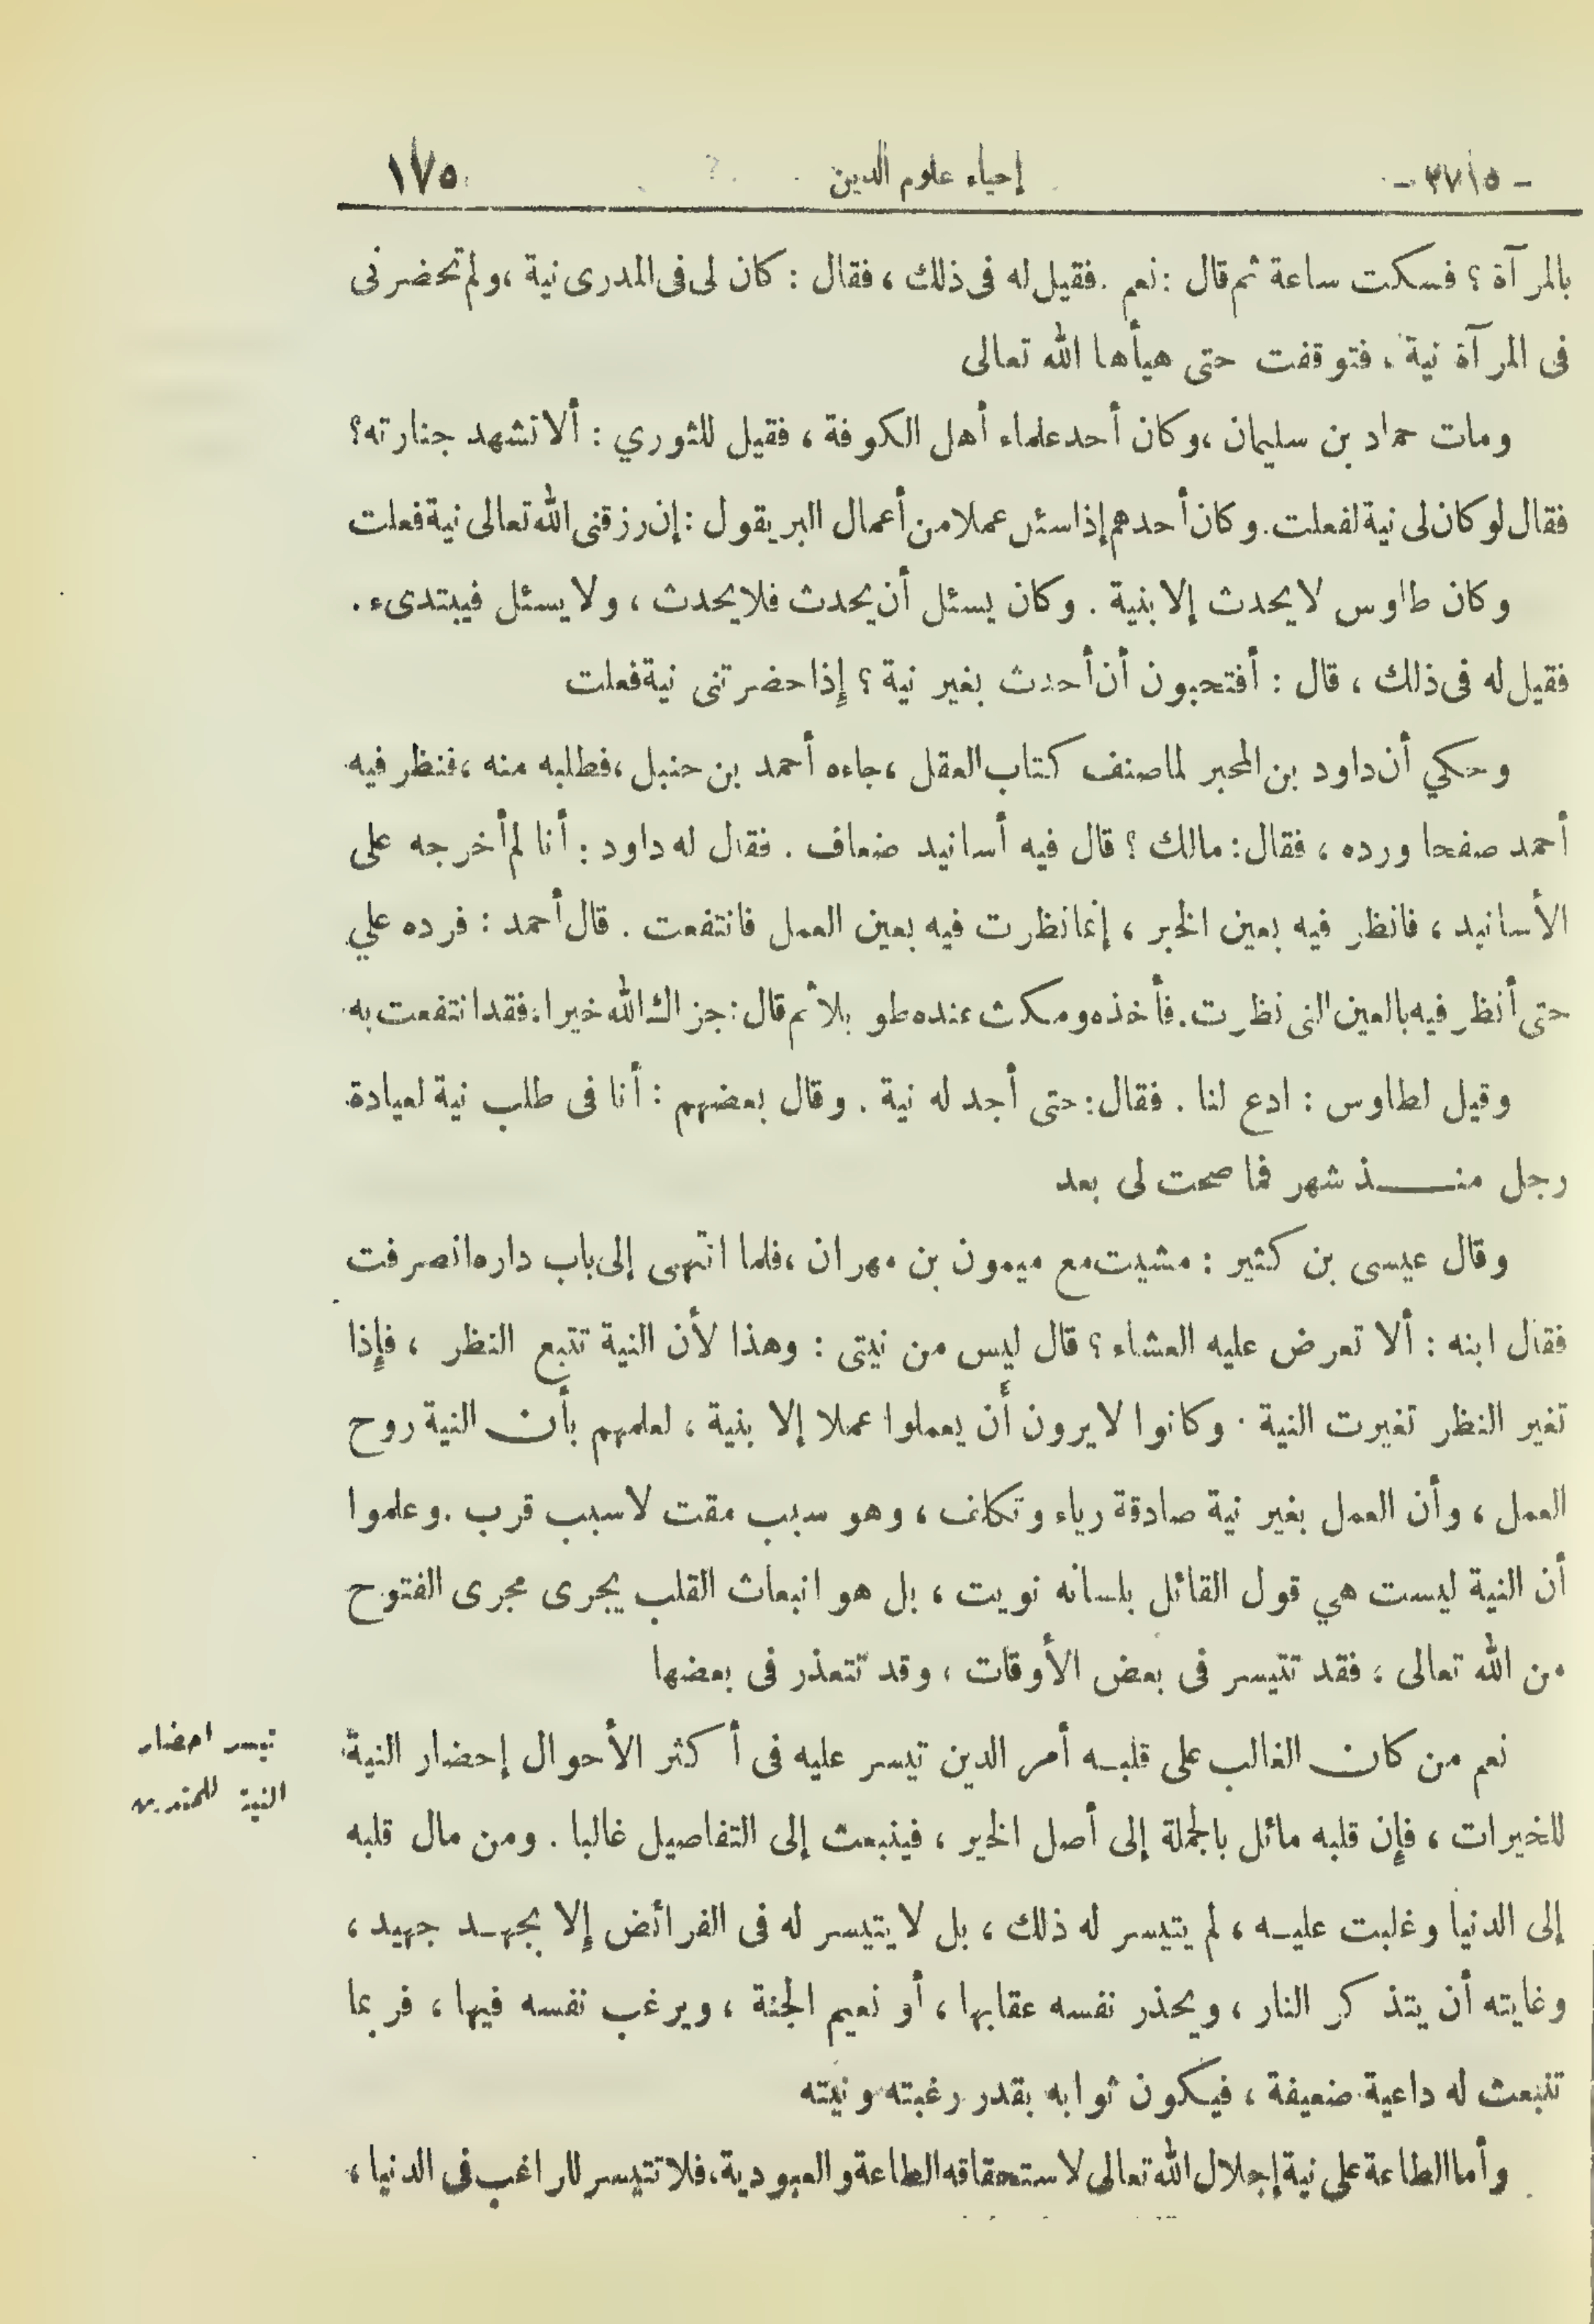 - ٣٧١٥ - إحياء علوم الدين ١٧٥
بالمرآة ؟ فسكت ساعة ثم قال : نعم . فقيل له فى ذلك ، فقال : كان لى فى المدرى نية ، ولم تحضرنى
فى المرآة نية ، فتوقفت حتى هيأها الله تعالى
ومات حماد بن سليمان ، وكان أحد علماء أهل الكوفة ، فقيل للثوري : ألا تشهد جنازته؟
فقال لو كان لى نية لفعلت . وكان أحدهم إذا سئل عملا من أعمال البر يقول : إن رزقنى الله تعالى نية فعلت
وكان طاوس لا يحدث إلا بنية . وكان يسئل أن يحدث فلا يحدث ، ولا يسئل فيبتدىء .
فقيل له فى ذلك ، قال : أفتحبون أن أحدث بغير نية ؟ إذا حضرتنى نية فعلت
وحكي أن داود بن المحبر لما صنف كتاب العقل ، جاءه أحمد بن حنبل ، فطلبه منه ، فنظر فيه
أحمد صفحا ورده ، فقال : مالك ؟ قال فيه أسانيد ضعاف . فقال له داود : أنا لم أخرجه على
الأسانيد ، فانظر فيه بعين الخبر ، إنما نظرت فيه بعين العمل فانتفعت . قال أحمد : فرده علي
حتى أنظر فيه بالعين التى نظرت . فأخذه ومكث عنده طويلا ثم قال : جزاك الله خيرا ، فقد انتفعت به
وقيل لطاوس : ادع لنا . فقال : حتى أجد له نية . وقال بعضهم : أنا فى طلب نية لعيادة
رجل منـــذ شهر فما صحت لى بعد
وقال عيسى بن كثير : مشيت مع ميمون بن مهران ، فلما انتهى إلى باب داره انصرفت
فقال ابنه : ألا تعرض عليه العشاء ؟ قال ليس من نيتى : وهذا لأن النية تتبع النظر ، فإذا
تغير النظر تغيرت النية . وكانوا لا يرون أن يعملوا عملا إلا بنية ، لعلمهم بأن النية روح
العمل ، وأن العمل بغير نية صادقة رياء وتكلف ، وهو سبب مقت لا سبب قرب . وعلموا
أن النية ليست هي قول القائل بلسانه نويت ، بل هو انبعاث القلب يجرى مجرى الفتوح
من الله تعالى ، فقد تتيسر فى بعض الأوقات ، وقد تتعذر فى بعضها
نعم من كان الغالب على قلبـه أمر الدين تيسر عليه فى أكثر الأحوال إحضار النية
تيسر احضار
النية للمتدين
للخيرات ، فإن قلبه مائل بالجملة إلى أصل الخير ، فينبعث إلى التفاصيل غالبا . ومن مال قلبه
إلى الدنيا وغلبت عليـه ، لم يتيسر له ذلك ، بل لا يتيسر له فى الفرائض إلا بجهـد جهيد ،
وغايته أن يتذكر النار ، ويحذر نفسه عقابها ، أو نعيم الجنة ، ويرغب نفسه فيها ، فربما
تنبعث له داعية ضعيفة ، فيكون ثوابه بقدر رغبته ونيته
وأما الطاعة على نية إجلال الله تعالى لاستحقاقه الطاعة والعبودية ، فلا تتيسر للراغب فى الدنيا ،